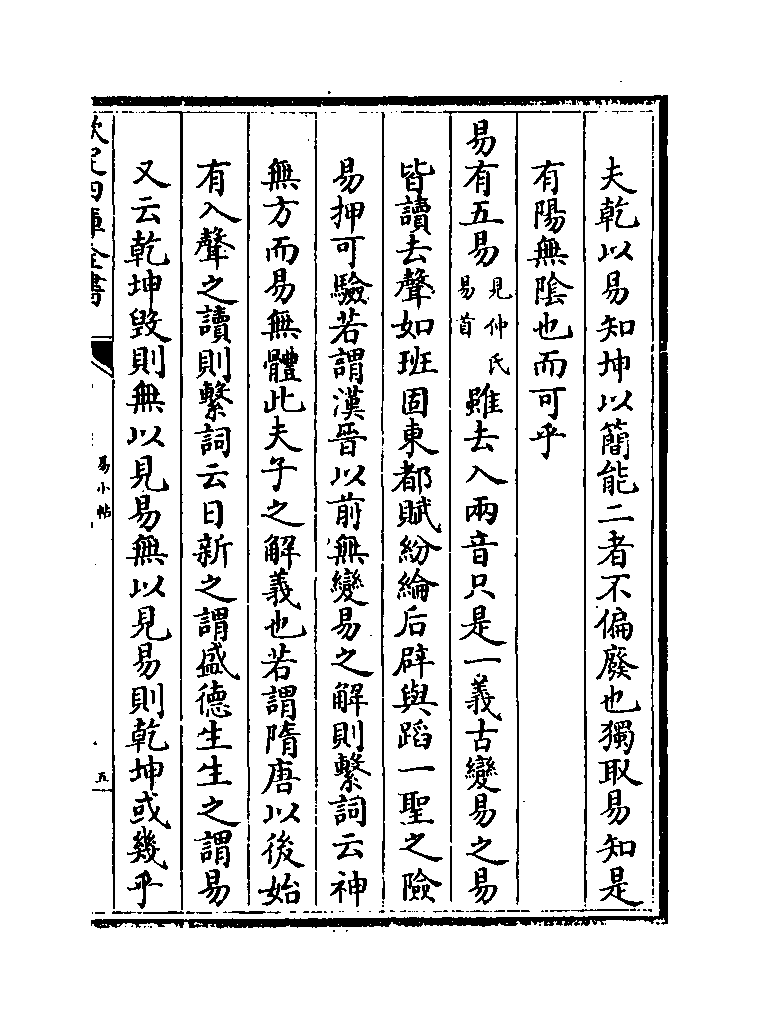 夫乾以易知坤以簡能二者不偏廢也獨取易知是
有陽無陰也而可乎
易有五易見仲氏易首雖去入兩音只是一義古變易之易
皆讀去聲如班固東都賦紛綸后辟與蹈一聖之險
易押可驗若謂漢晉以前無變易之解則繫詞云神
無方而易無體此夫子之解義也若謂隋唐以後始
有入聲之讀則繫詞云日新之謂盛德生生之謂易
又云乾坤毀則無以見易無以見易則乾坤或幾乎
欽定四庫全書
易小帖
五